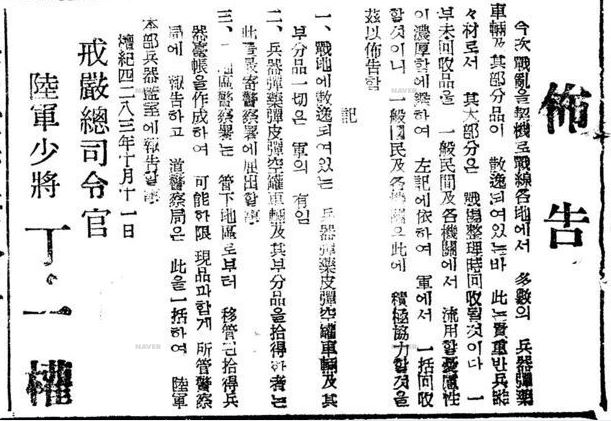 佈告
今次戰亂을 契機로 戰線各地에서 多數의 兵器彈藥
車輛及其部分品이 散逸되여있는바 此는 貴重한 兵器
材로서 其大部分은 戰場整理時回收될것이다 一
部未回收品을 一般民間及各機關에서 流用할憂慮性
이 濃厚함에 鑑하여 左記에 依하여 軍에서 一括回收
할것이니 一般國民及各機關은 此에 積極協力할것을
玆以佈告함
記
一、戰地에 散逸되여있는 兵器彈藥彈皮彈空罐車輛及其
部分品一切은 軍의 有임
二、兵器彈藥彈皮彈空罐車輛及其部分品을 拾得한者는
此를 最寄警察署에 屆出할事
三、地區警察署는 管下地區로부터 移管된 拾得兵
器臺帳을 作成하여 可能한限 現品과함께 所管警察
局에 報告하고 道警察局은 此을 一括하여 陸軍
本部兵器監室에 報告할事
檀紀四二八三年十月十一日
戒嚴總司令官
陸軍少將 丁一權
NAVER
NAVER
NAVER